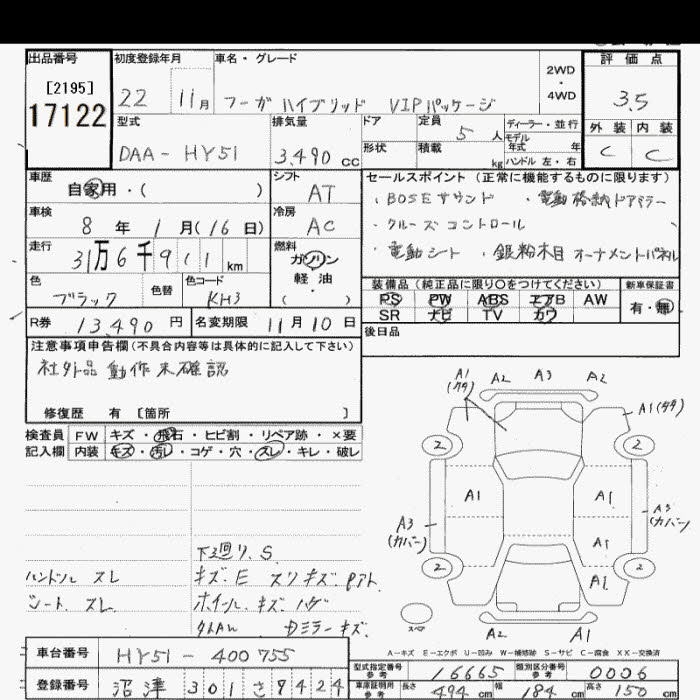 出品番号 初度登録年月 車名・グレード 評価点
[2195]
17122
22 11月 フーガ ハイブリッド VIPパッケージ
2WD
・
4WD
3.5
型式 排気量 ドア 定員 5 人 ディーラー・並行
モデル
年式 年
外装 内装
DAA-HY51 3,490 cc 形状 積載 kg ハンドル 左・右
C C
車歴 シフト セールスポイント (正常に機能するものに限ります)
自家用・( ) AT
・BOSEサウンド ・電動格納ドアミラー
車検 冷房
8 年 1 月 (16 日) AC
・クルーズコントロール
走行 燃料
31万6千911 km ガソリン
・電動シート ・銀粉木目オーナメントパネル
軽・油
( )
色 色替 色コード
ブラック KH3
装備品 (純正品に限り○をつけてください) 新車保証書
PS PW ABS エアB AW 有・無
SR ナビ TV カワ
R券 13,490 円 名変期限 11月10日
後日品
注意事項申告欄 (不具合内容等は具体的に記入して下さい)
社外品動作未確認
修復歴 有 [箇所 ]
検査員 FW キズ・飛石・ヒビ割・リペア跡・×要
記入欄 内装 キズ・汚レ・コゲ・穴・スレ・キレ・破レ
A1 A2 A3 A2
A1
2 2
A1 A1
A3
(カバー)
A3
(カバー)
A1
2 2
A1
スペア
A2 A1
下廻リ.S
ハンドル スレ キズ.E スリキズ.Pアト
シート.スレ ホイール.キズ.ハゲ
ミラーキズ.
A-キズ E-エクボ U-凹み W-補修跡 S-サビ C-腐食 XX-交換済
車台番号 HY51-400755
型式指定番号
参考
16665
類別区分番号
参考
0006
登録番号 沼津 301 さ 9424
車庫証明用
参考
長さ 494 cm 幅 184 cm 高さ 150 cm